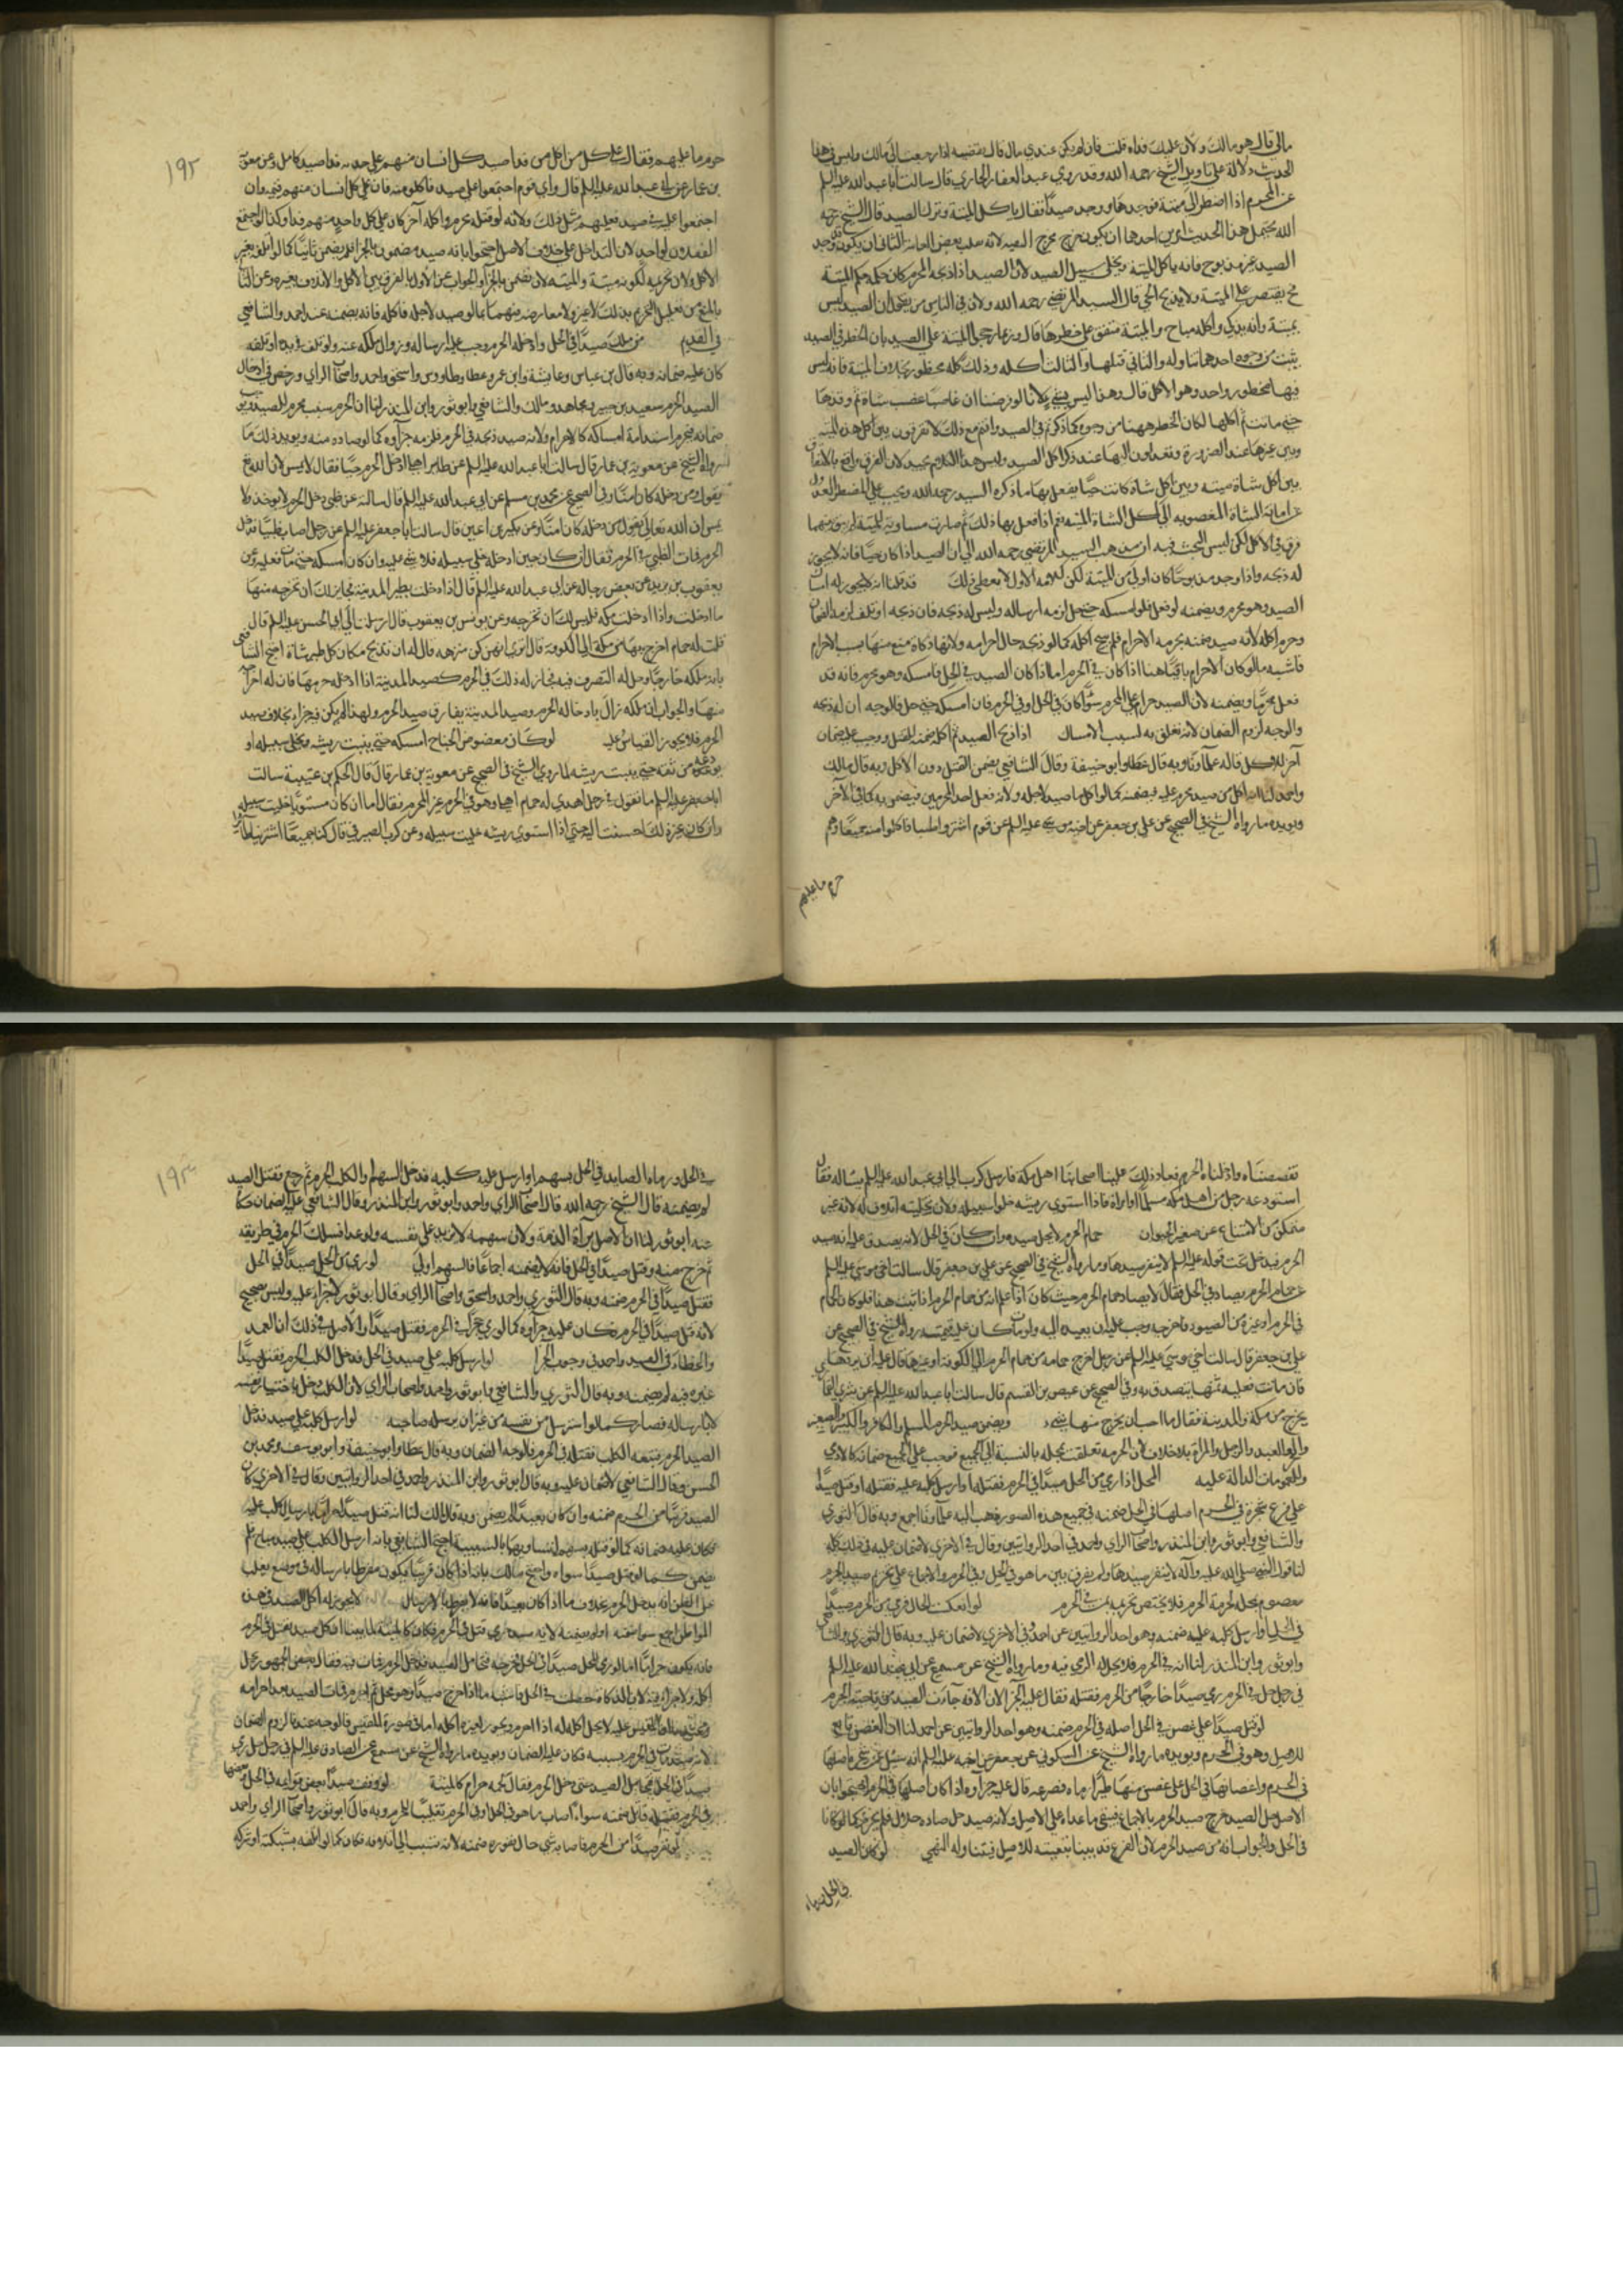 مالي قال هو مالك ولان عليك فداه قلت فان لم يكن عندي مال قال تقضيه اذا رجعت الى مالك وليس في هذا
الحديث دلالة على تاويل الشيخ رحمه الله وقد روي عبد الغفار الجازي قال سالت ابا عبد الله عليه السلم
عن المحرم اذا اضطر الى ميتة فوجدها ووجد صيدا فقال ياكل الميتة ويترك الصيد قال الشيخ رحمه
الله يحتمل هذا الحديث امرين احدهما ان يكون خرج مخرج التقيه لانه مذهب بعض العامة الثاني ان يكون وجد
الصيد غير مذبوح فانه ياكل الميتة ويخلى سبيل الصيد لان الصيد اذا ذبحه المحرم كان حكمه حكم الميتة
يقتصر على الميتة ولا يذبح الحي قال السيد المرتضى رحمه الله ولان في الناس من يقول ان الصيد ليس
بميتة وانه يذكى واكله مباح والميتة متفق على حظرها قال وربما رجحوا الميتة على الصيد بان الحظر في الصيد
يثبت من وجوه احدها تناوله والثاني قتلها والثالث اكله وذلك كله محظور بخلاف الميتة فانه ليس
فيها محظور واحد وهو الاكل قال وهذا ليس بشيء لانا لو فرضنا ان غاصبا غصب شاة ثم وقذها
حتى ماتت ثم اكلها لكان الحظر ههنا من وجوه كما ذكرتم في الصيد وانتم مع ذلك لا تفرقون بين اكل هذه الميتة
وبين غيرها عند الضرورة
بين اكل شاة ميتة وبين اكل شاة كانت حيا يفعل بها ما ذكره السيد رحمه الله ويجب على المضطر العدول
عن اماتة الشاة المغصوبه الى اكل الشاة الميتة نعم اذا فعل بها ذلك ثم صارت مساوية للميتة لم يبق بينهما
فرق في الاكل لكن ليس البحث فيه
له ذبحه واذا وجد مذبوحا كان اولى من الميتة لكن كلامه الاول لا يعطي ذلك قد بينا انه لا يجوز له امساك
الصيد وهو محرم ويضمنه لو فعل فلو امسكه حتى حل لزمه ارساله وليس له ذبحه فان ذبحه او تلف لزمه الضمان
وحرم اكله لانه صيد ضمنه بحرمة الاحرام فلم يبح اكله كما لو ذبحه حال احرامه ولانها ذكاة منع منها بسبب الاحرام
فاشبه ما لو كان الاحرام باقيا هذا اذا كان في الحرم اما اذا كان الصيد في الحل فامسكه وهو محرم فانه قد
فعل محرما ويضمنه لان الصيد حرام على المحرم سواء كان في الحل او في الحرم فان امسكه حتى حل فالوجه ان له ذبحه
والوجه لزوم الضمان لانه تعلق به لسبب الامساك اذا ذبح الصيد ثم اكله ضمنه للقتل ووجب عليه ضمان
آخر للاكل قاله علماؤنا وبه قال عطا وابو حنيفة وقال الشافعي يضمن القتل دون الاكل وبه قال مالك
واحمد لنا انه اكل من صيد محرم عليه فيضمنه كما لو اكل ما صيد لاجله ولانه فعل احد المحرمين فيضمن به كما في الآخر
ويويده ما رواه الشيخ في الصحيح عن علي بن جعفر عن اخيه موسى عليه السلم عن قوم اشتروا ظبيا فاكلوا منه جميعا وهم
حرم ما عليهم
١٩٢
حرم ما عليهم فقال على كل من اكل منه فداء صيد كل انسان منهم على حدته فداء صيد كامل وعن معوية
بن عمار عن ابي عبد الله عليه السلم قال واي قوم اجتمعوا على صيد فاكلوا منه فان على كل انسان منهم قيمة وان
اجتمعوا عليه في صيد فعليهم مثل ذلك ولانه لو قتله محرم واكله آخر كان على كل واحد منهم فداء وكذا لو اجتمع
الفعلان لواحد لان التداخل على خلاف الاصل احتجوا بانه صيد مضمون بالجزا فلم يضمن ثانيا كما لو اتلفه بغير
الاكل ولان تحريمه لكونه ميتة والميتة لا تضمن بالجزا والجواب عن الاول بالفرق بين الاكل والاتلاف بغيره وعن الثاني
بالمنع من تعليل التحريم بذلك لا غير
في القديم من ملك صيدا في الحل وادخله الحرم وجب عليه ارساله وزوال ملكه عنه ولو تلف في يده او تلفه
كان عليه ضمانه وبه قال بن عباس وعايشة وابن عمر وعطا وطاووس واسحق واحمد واصحاب الراي ورخص في ادخال
الصيد الحرم سعيد بن جبير ومجاهد ومالك والشافعي وابو ثور وابن المنذر لنا ان الحرم سبب محرم للصيد يوجب
ضمانه فيحرم استدامة امساكه كالاحرام ولانه صيد ذبحه في الحرم فلزمه جزاؤه كما لو صاده منه ويويد ذلك ما
رواه الشيخ عن معوية بن عمار قال سالت ابا عبد الله عليه السلم عن طاير اهلي ادخل الحرم حيا فقال لا يمس لان الله تع
يقول ومن دخله كان امنا وفي الصحيح عن محمد بن مسلم عن ابي عبد الله عليه السلم قال سالته عن ظبي دخل الحرم لا يوخذ ولا
يمس ان الله تعالى يقول من دخله كان امنا وعن بكير بن اعين قال سالت ابا جعفر عليه السلم عن رجل اصاب ظبيا فادخله
الحرم فمات الظبي في الحرم فقال ان كان حين ادخله خلى سبيله فلا شيء عليه وان كان امسكه حتى مات فعليه وعن
يعقوب بن يزيد عن بعض رجاله عن ابي عبد الله عليه السلم قال اذا ادخلت بطير المدينة فجايز لك ان تخرجه منها
ما ادخلت واذا ادخلت مكه فليس لك ان تخرجه وعن يونس بن يعقوب قال ارسلت الى ابي الحسن عليه السلم قال
قلت له حمام اخرج بها من مكة الى الكوفة قال له ان تذبح مكان كل طير شاة احتج الشافعي
بانه ملكه خارجا وحل له التصرف فيه فجاز له ذلك في الحرم كصيد المدينة اذا ادخله حرمها فان له اخراجه
منها والجواب ان ملكه زال بادخاله الحرم وصيد المدينة يفارق صيد الحرم ولهذا لم يكن فيه جزاء بخلاف صيد
الحرم فلا يجوز القياس عليه لو كان مقصوص الجناح امسكه حتى ينبت ريشه ويخلى سبيله او
يودعه من ثقه حتى ينبت ريشه لما روى الشيخ في الصحيح عن معوية بن عمار قال قال الحكم بن عتيبة سالت
ابا جعفر عليه السلم ما تقول في رجل اهدي له حمام اهلي وهو في الحرم من غير الحرم فقال اما ان كان مستويا خليت سبيله
وان كان غير ذلك احسنت اليه حتى اذا استوى ريشه خليت سبيله وعن كرب الصيرفي قال كنا جميعا اشترينا طايرا
فقصصناه وادخلناه الحرم فعاب ذلك علينا اصحابنا اهل مكة فارسل كرب الى ابي عبد الله عليه السلم يساله فقال
استودعه رجلا من اهل مكه مسلما او امراة فاذا استوى ريشه خلوا سبيله ولان تخليته اتلاف له لانه غير
متمكن من الامتناع عن صغير الحيوان حمام الحرم لا يحل صيده وان كان في الحل لانه يصدق عليه انه صيد
الحرم فيدخل تحت قوله عليه السلم لا ينفر صيدها وما رواه الشيخ في الصحيح عن علي بن جعفر قال سالت اخي موسى عليه السلم
عن حمام الحرم يصاد في الحل فقال لا يصاد حمام الحرم حيث كان اذا علم انه من حمام الحرم اذا ثبت هذا فلو كان الحمام
في الحرم او غيره من الصيود فاخرجه وجب عليه ان يعيده اليه ولو مات كان عليه قيمته رواه الشيخ في الصحيح عن
علي بن جعفر قال سالت اخي موسى عليه السلم عن رجل اخرج حمامة من حمام الحرم الى الكوفة او غيرها قال عليه ان يردها
فان ماتت فعليه ثمنها يتصدق به وفي الصحيح عن عيص بن القسم قال سالت ابا عبد الله عليه السلم عن شرى القماري
يخرج من مكة والمدينة فقال ما احب ان يخرج منها شيء ويضمن صيد الحرم المسلم والكافر والكبير والصغير
والحر والعبد والرجل والمراة بلا خلاف لان الحرمه تعلقت بمحله بالنسبة الى الجميع فوجب على الجميع ضمانه كالادمي
وللعمومات الدالة عليه المحل اذا رمى من الحل صيدا في الحرم فقتله او ارسل كلبه عليه فقتله او قتل صيدا
على فرع شجرة في الحرم اصلها في الحل ضمنه في جميع هذه الصور ذهب اليه علماؤنا اجمع وبه قال الثوري
والشافعي وابو ثور وابن المنذر واصحاب الراي واحمد في احد الروايتين وقال في الاخرى لا ضمان عليه في ذلك كله
لنا قول النبي صلى الله عليه وآله لا ينفر صيدها ولم يفرق بين ما هو في الحل وفي الحرم والاجماع على تحريم صيد الحرم
معصوم بمحله لحرمة الحرم فلا يختص تحريمه بمن في الحرم لو انعكست الحال فرمى من الحرم صيدا
في الحل او ارسل كلبه عليه ضمنه وهو احد الروايتين عن احمد وفي الاخرى لا ضمان عليه وبه قال الثوري والشافعي
وابو ثور وابن المنذر لنا انه في الحرم فلا يحل له الرمي فيه وما رواه الشيخ عن مسمع عن ابي عبد الله عليه السلم
في رجل حل في الحرم رمى صيدا خارجا من الحرم فقتله فقال عليه الجزا لان الافة جاءت الصيد من ناحية الحرم
لو قتل صيدا على غصن في الحل اصله في الحرم ضمنه وهو احد الروايتين عن احمد لنا ان الغصن تابع
للاصل وهو في الحرم ويويده ما رواه الشيخ عن السكوني عن جعفر عن ابيه عليه السلم انه سئل عن شجرة اصلها
في الحرم واغصانها في الحل على غصن منها طير رماه فصرعه قال عليه جزاؤه اذا كان اصلها في الحرم احتجوا بان
الاصل حل الصيد خرج صيد الحرم بالاجماع فيبقى ما عداه على الاصل ولانه صيد حل صاده حلال فلم يحرم كما لو كانا
في الحل والجواب انه من صيد الحرم لان الفرع قد بينا تبعيته للاصل فيتناوله النهي لو كان الصيد
في الحل ورماه
١٩٣
في الحل ورماه الصايد في الحل بسهم او ارسل عليه كلبه فدخل السهم او الكلب الحرم ثم رجع فقتل الصيد
لم يضمنه قال الشيخ رحمه الله قال اصحاب الراي واحمد وابو ثور وابن المنذر وقال الشافعي عليه الضمان حكاه
عنه ابو ثور لنا ان الاصل براءة الذمة ولان سهمه لا يزيد على نفسه ولو عدا فسلك الحرم في طريقه
ثم خرج منه وقتل صيدا في الحل فانه لا يضمنه اجماعا فالسهم اولى لو رمى من الحل صيدا في الحل
فقتل صيدا في الحرم ضمنه وبه قال الثوري واحمد واسحق واصحاب الراي وقال ابو ثور لا جزاء عليه وليس بصحيح
لانه قتل صيدا في الحرم فكان عليه جزاؤه كما لو رمى حجرا في الحرم فقتل صيدا والاصل في ذلك ان العمد
والخطاء في الصيد واحد في وجوب الجزا لو ارسل كلبه على صيد في الحل فدخل الكلب الحرم فقتل صيدا
غيره فيه لم يضمنه وبه قال الثوري والشافعي وابو ثور واحمد واصحاب الراي لان الكلب دخل باختيار نفسه
لا بارساله فصار كما لو استرسل من نفسه من غير ان يرسله صاحبه لو ارسل كلبه على صيد فدخل
الصيد الحرم فتبعه الكلب فقتله في الحرم فالوجه الضمان وبه قال عطا وابو حنيفة وابو يوسف ومحمد بن
الحسن وقال الشافعي لا ضمان عليه وبه قال ابو ثور وابن المنذر واحمد في احد الروايتين وقال في الاخرى ان كان
الصيد قريبا من الحرم ضمنه وان كان بعيدا لم يضمن وبه قال مالك لنا انه قتل صيدا حراميا بارسال كلب عليه
فكان عليه ضمانه كما لو قتله بسهمه لتساويهما بالسببية احتج الشافعي بانه ارسل الكلب على صيد مباح فلم
يضمن كما لو قتل صيدا سواه واحتج مالك بانه اذا كان قريبا يكون مفرطا بارساله في موضع يغلب
على الظن انه يدخل الحرم بخلاف ما اذا كان بعيدا فانه لا يفرط بالارسال لا يجوز له اكل الصيد في هذه
المواطن اجمع سواء ضمنه او لم يضمنه لانه صيد حرمي قتل في الحرم فكان كالميتة لما بينا ان كل صيد يقتل في الحرم
فانه يكون حراما اما لو رمى المحل صيدا في الحل فجرحه فتحامل الصيد فدخل الحرم فمات فيه فقال بعض الجمهور يحل
لو وقف صيد بعض قوايمه في الحل وبعضها
في الحرم فقتله قاتل ضمنه سواء اصاب ما هو في الحل او في الحرم تغليبا للحرم وبه قال ابو ثور واصحاب الراي واحمد
لو نفر صيدا من الحرم فاصابه شيء حال نفوره ضمنه لانه تسبب الى اتلافه فكان كما لو اتلفه بشبكته او شركه